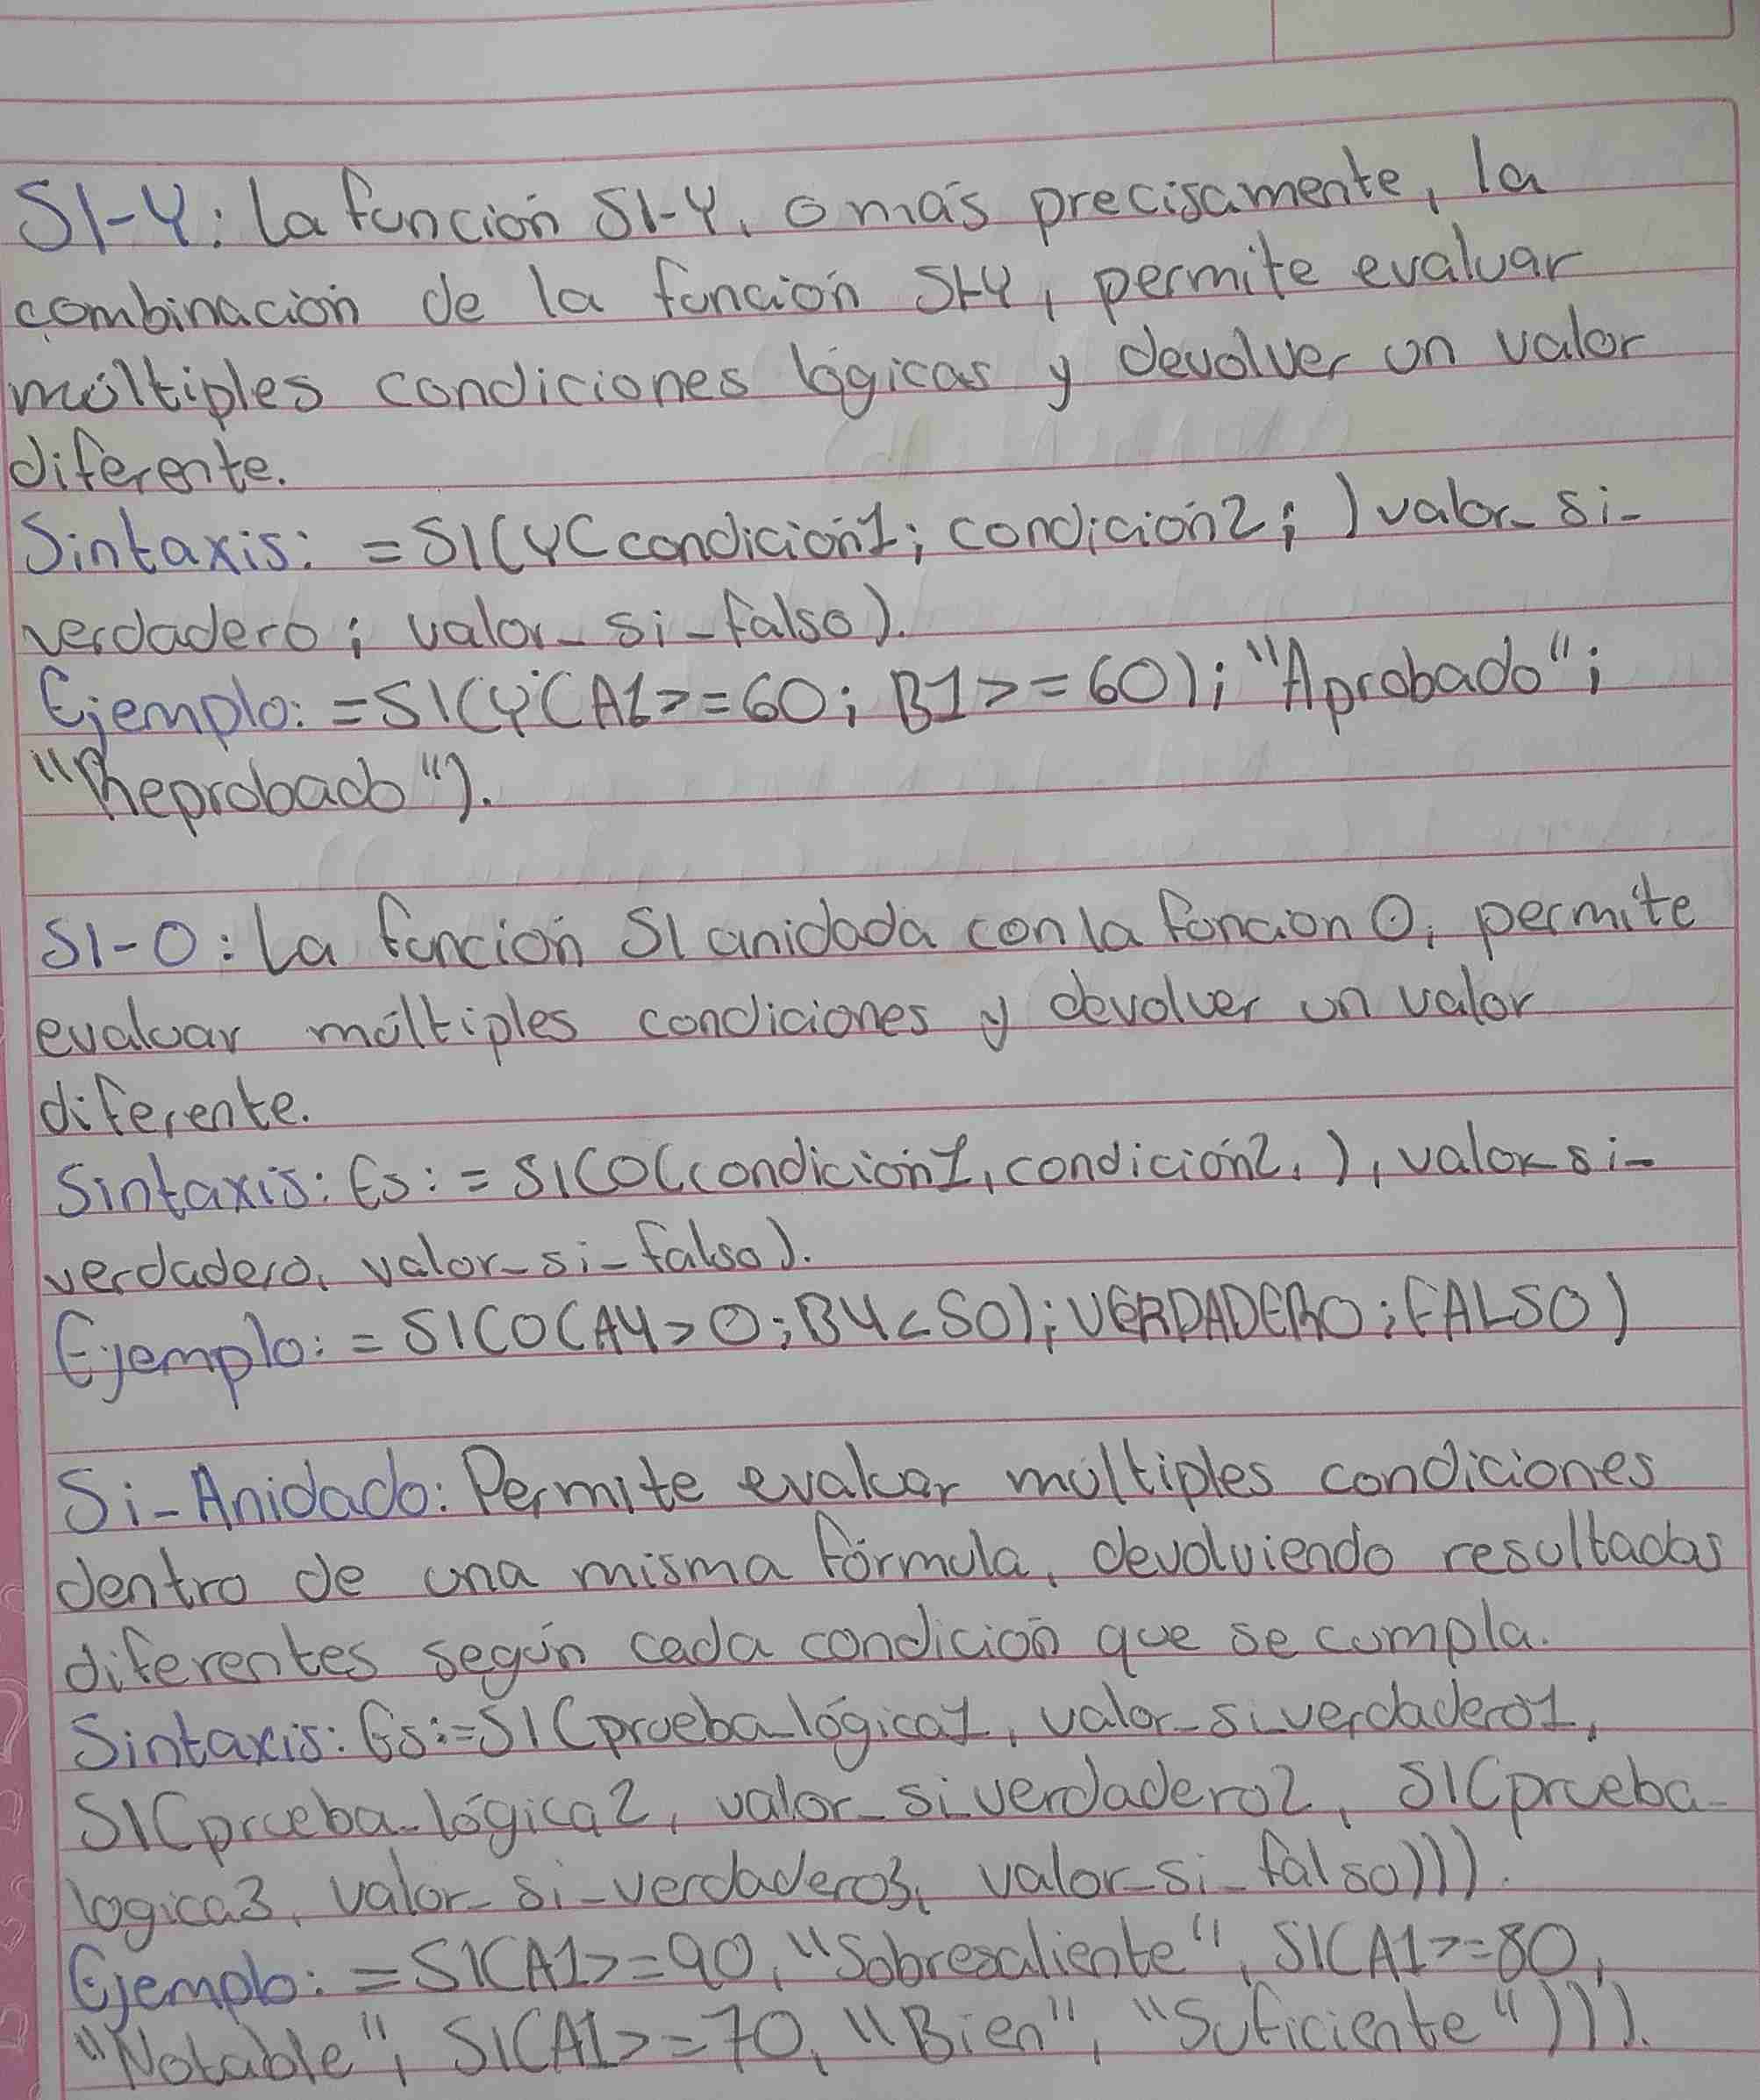 SI-Y: La función SI-Y, o más precisamente, la
combinación de la función SI-Y, permite evaluar
múltiples condiciones lógicas y devolver un valor
diferente.
Sintaxis: =SI(Y(condición1; condición2; ) valor_si-
verdadero; valor_si_falso).
Ejemplo: =SI(Y(A1>=60; B1>=60); "Aprobado";
"Reprobado").
SI-O: La función SI anidada con la función O, permite
evaluar múltiples condiciones y devolver un valor
diferente.
Sintaxis: Es: =SI(O(condición1, condición2, ), valor si-
verdadero, valor_si_falso).
Ejemplo: =SI(O(A4>0; B4<50); VERDADERO; FALSO)
Si-Anidado: Permite evaluar múltiples condiciones
dentro de una misma fórmula, devolviendo resultados
diferentes según cada condición que se cumpla.
Sintaxis: Es:=SI(prueba_lógica1, valor_si_verdadero1,
SI(prueba_lógica2, valor_si_verdadero2, SI(prueba-
logica3, valor_si_verdadero3, valor_si_falso))).
Ejemplo: =SI(A1>=90, "Sobresaliente", SI(A1>=80,
"Notable", SI(A1>=70, "Bien", "Suficiente"))).